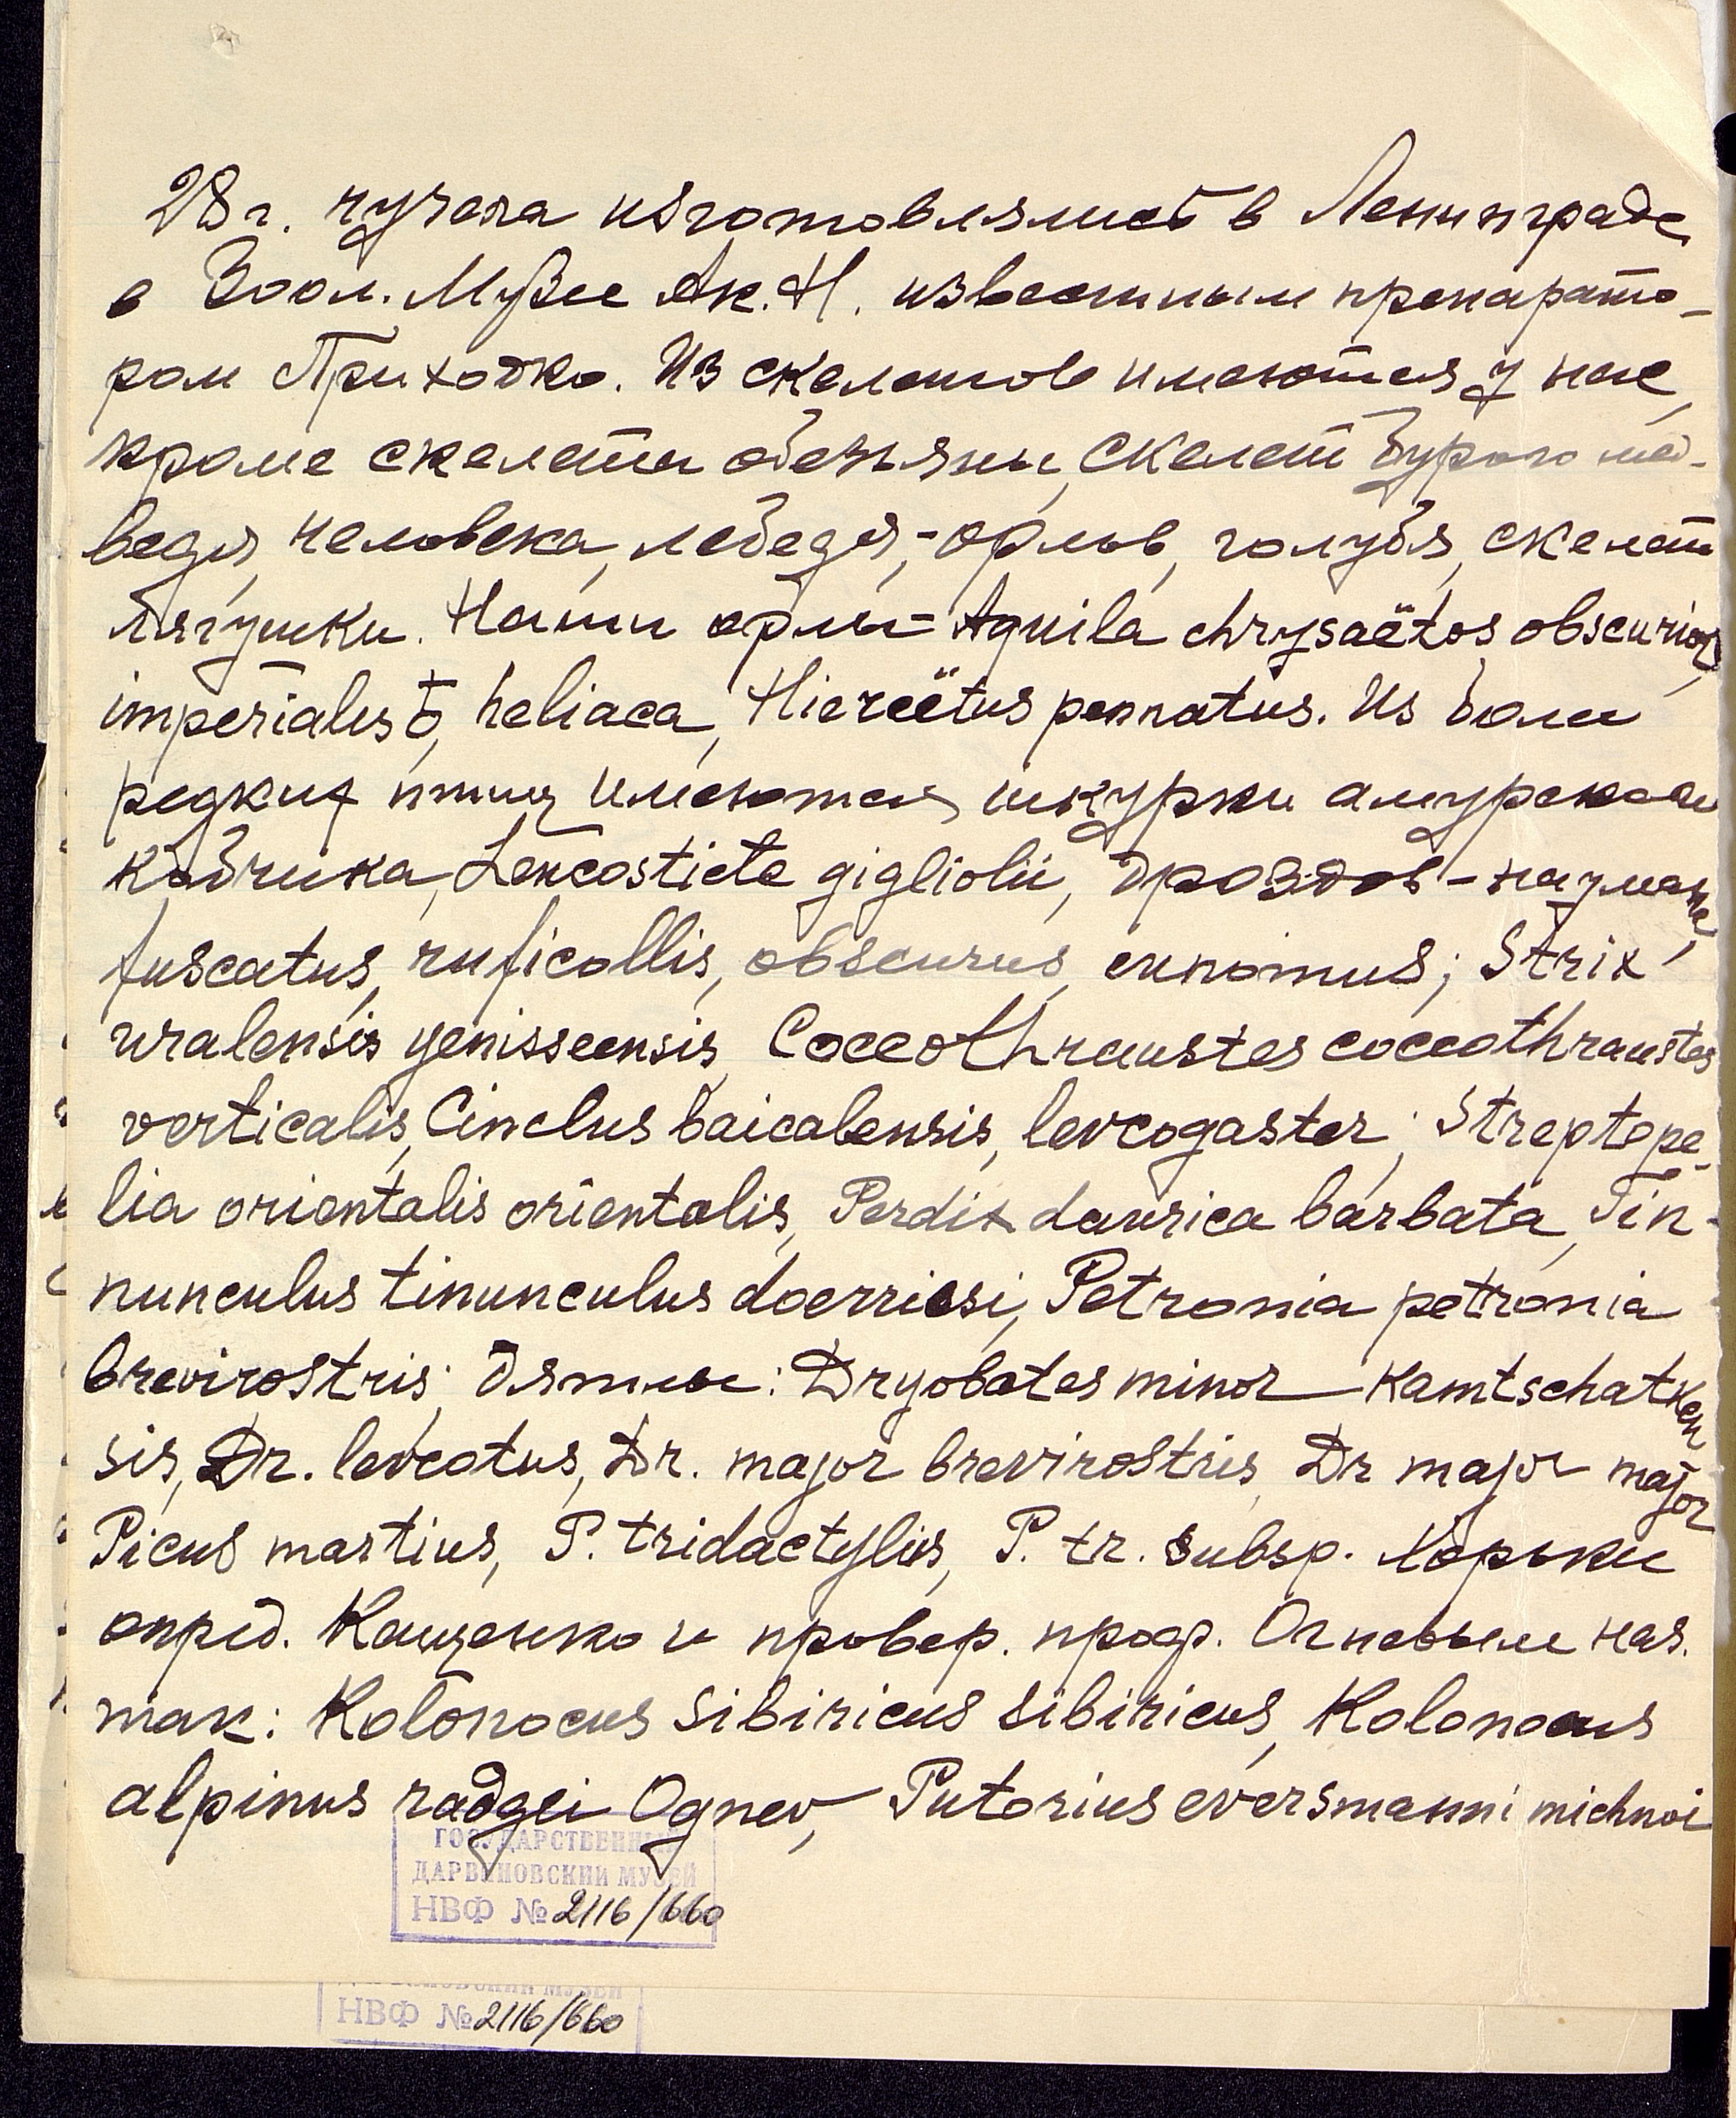 28 г. чучела изготовлялись в Ленинграде
в Зоол. Музее Ак. Н. известным препарато-
ром Приходко. Из скелетов имеются у нас,
кроме скелета обезьяны, скелет бурого мед-
ведя, человека, лебедя,- орлов, голубя, скелет
лягушки. Наши орлы - Aquila chrysaëtos obscurior,
imperialis ♁, heliaca, Hieraëtus pennatus. Из боле
редких птиц имеются шкурки амурского
кобчика, Leucosticte gigliolii, дроздов - наумана,
fuscatus, ruficollis, obscurus, eunomus; Strix
uralensis yenisseensis, Coccothraustes coccothraustes
verticalis, Cinclus baicalensis, levcogaster; Streptope-
lia orientalis orientalis, Perdix daurica barbata, Tin-
nunculus tinunculus doerriesi, Petronia petronia
brevirostris; дятлы: Dryobates minor kamtschatken
sis, Dr. levcotus, Dr. major brevirostris, Dr major major
Picus martius, P. tridactylus, P. tr. subsp. Хорьки
опред. Кащенко и провер. проф. Огневым наз.
так: Kolonocus sibiricus sibiricus, Kolonocus
alpinus raddei Ognev, Putorius eversmanni michnoi
ГОСУДАРСТВЕННЫЙ
ДАРВИНОВСКИЙ МУЗЕЙ
НВФ № 2116/660
ДАРВИНОВСКИЙ МУЗЕЙ
НВФ № 2116/660